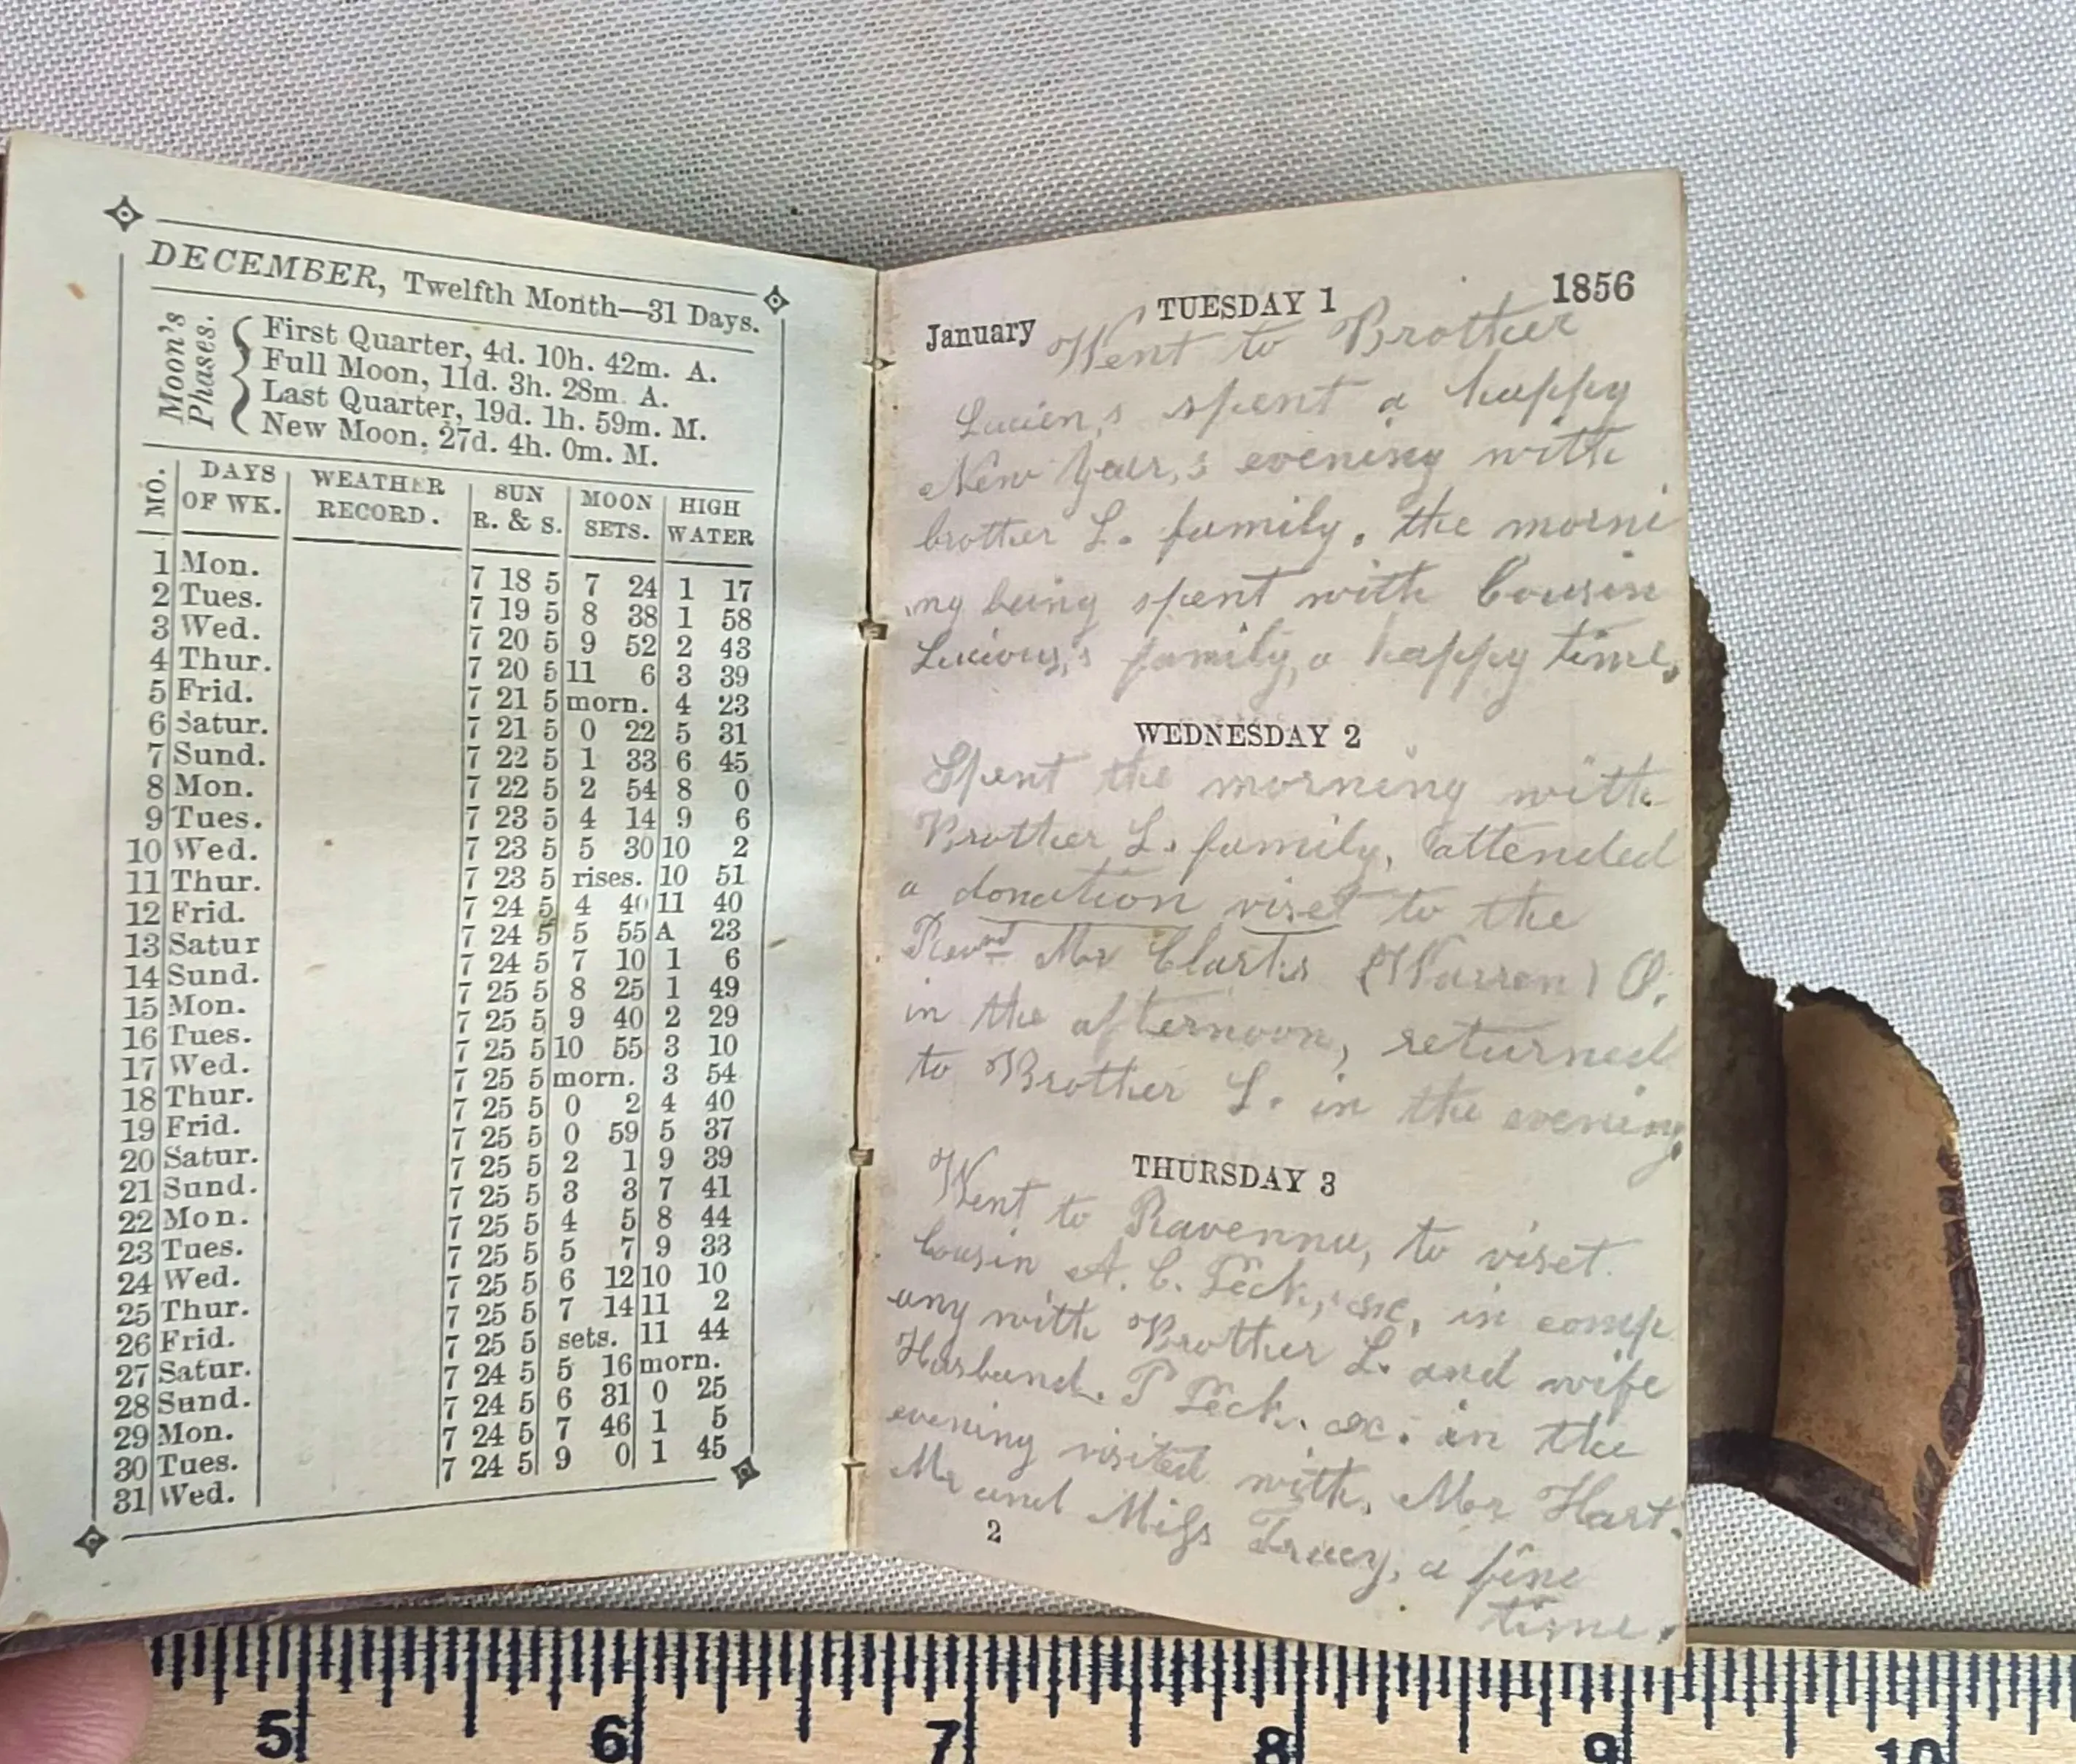 DECEMBER, Twelfth Month—31 Days.
Moon's Phases.
First Quarter, 4d. 10h. 42m. A.
Full Moon, 11d. 3h. 28m. A.
Last Quarter, 19d. 1h. 59m. M.
New Moon, 27d. 4h. 0m. M.
MO. | DAYS OF WK. | WEATHER RECORD. | SUN R. & S. | MOON SETS. | HIGH WATER
1 Mon. 7 18 5 7 24 1 17
2 Tues. 7 19 5 8 38 1 58
3 Wed. 7 20 5 9 52 2 43
4 Thur. 7 20 5 11 6 3 39
5 Frid. 7 21 5 morn. 4 23
6 Satur. 7 21 5 0 22 5 31
7 Sund. 7 22 5 1 33 6 45
8 Mon. 7 22 5 2 54 8 0
9 Tues. 7 23 5 4 14 9 6
10 Wed. 7 23 5 5 30 10 2
11 Thur. 7 23 5 rises. 10 51
12 Frid. 7 24 5 4 40 11 40
13 Satur 7 24 5 5 55 A 23
14 Sund. 7 24 5 7 10 1 6
15 Mon. 7 25 5 8 25 1 49
16 Tues. 7 25 5 9 40 2 29
17 Wed. 7 25 5 10 55 3 10
18 Thur. 7 25 5 morn. 3 54
19 Frid. 7 25 5 0 2 4 40
20 Satur. 7 25 5 0 59 5 37
21 Sund. 7 25 5 2 1 9 39
22 Mon. 7 25 5 3 3 7 41
23 Tues. 7 25 5 4 5 8 44
24 Wed. 7 25 5 5 7 9 33
25 Thur. 7 25 5 6 12 10 10
26 Frid. 7 25 5 7 14 11 2
27 Satur. 7 25 5 sets. 11 44
28 Sund. 7 24 5 5 16 morn.
29 Mon. 7 24 5 6 31 0 25
30 Tues. 7 24 5 7 46 1 5
31 Wed. 7 24 5 9 0 1 45
January TUESDAY 1 1856
Went to Brother
Lucien,s spent a happy
New Year,s evening with
brother L. family, the morni
ng being spent with Cousin
Lucious,s family, a happy time,
WEDNESDAY 2
Spent the morning with
Brother L. family, attended
a donation viset to the
Revnd Mr (Warren) O.
in the afternoon, returned
to Brother L. in the evening
THURSDAY 3
Went to Ravenna, to viset
Cousin A. C. Peck, &c, in comp
any with Brother L. and wife
Husband. P Peck. &c. in the
evening visited with, Mr Hart.
Mr and Miss Tracy, a fine
time.
2
5 6 7 8 9 10